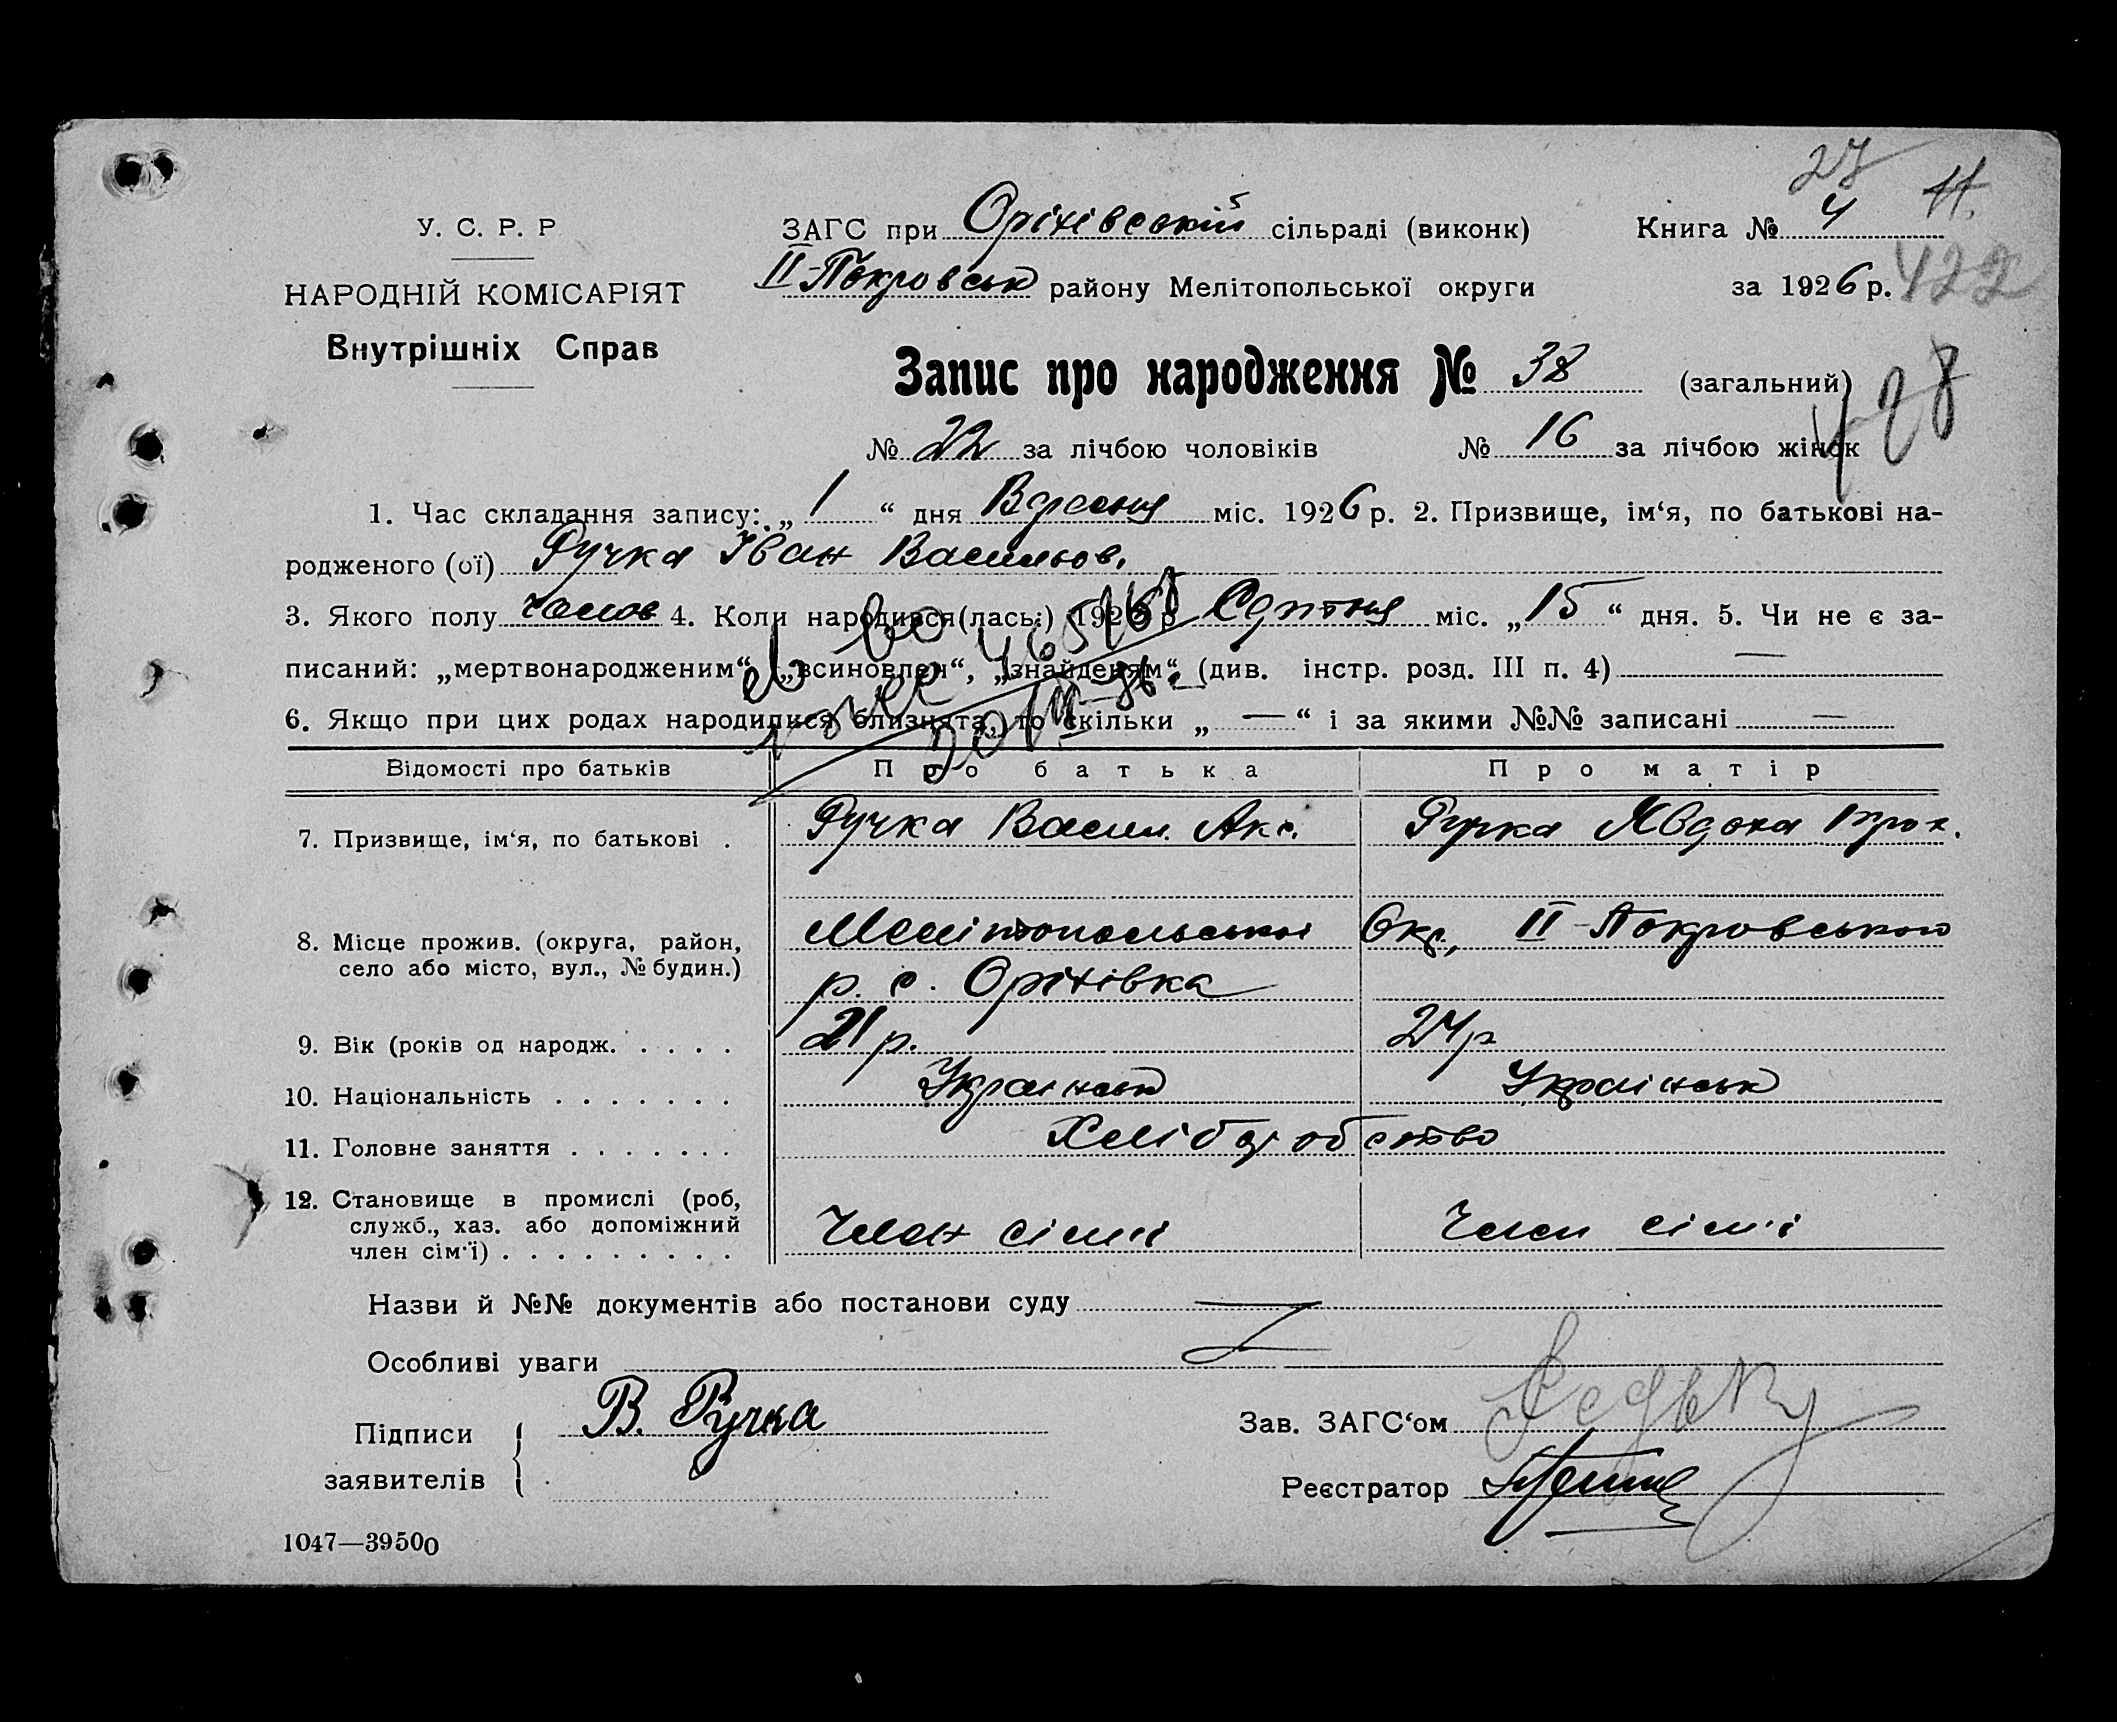 27 11.
У. С. Р. Р
ЗАГС при Оріхівській сільраді (виконк) Книга № 4
НАРОДНІЙ КОМІСАРІЯТ
II-Покровськ району Мелітопольської округи за 1926 р. 422
Внутрішніх Справ
Запис про народження № 38 (загальний)
428
№ 22 за лічбою чоловіків № 16 за лічбою жінок
1. Час складання запису: „ 1 “ дня Вересня міс. 1926 р. 2. Призвище, ім‘я, по батькові на-
родженого (ої) Ручка Іван Васильов.
3. Якого полу чолов 4. Коли народився(лась:) 1926 р Серпня міс. „ 15 “ дня. 5. Чи не є за-
писаний: „мертвонародженим“, „всиновлен“, „знайденям“ (див. інстр. розд. III п. 4) —
6. Якщо при цих родах народилися близнята, то скільки „ — “ і за якими №№ записані —
Відомості про батьків Про батька Про матір
7. Призвище, ім‘я, по батькові . Ручка Васил. Акс. Ручка Явдоха
8. Місце прожив. (округа, район, Мелітопольської Окр., II-Покровського
село або місто, вул., № будин.) р. с. Оріхівка
9. Вік (років од народж. . . . . 21 р. 24 р
10. Національність . . . . . . . Українськ Українськ
11. Головне заняття . . . . . . . Хліборобство
12. Становище в промислі (роб,
служб., хаз. або допоміжний Член сімї Член сім'ї
член сім‘ї) . . . . . . . . .
Назви й №№ документів або постанови суду
Особливі уваги
Підписи В. Ручка
Зав. ЗАГС‘ом
заявителів
Реєстратор
1047—39500